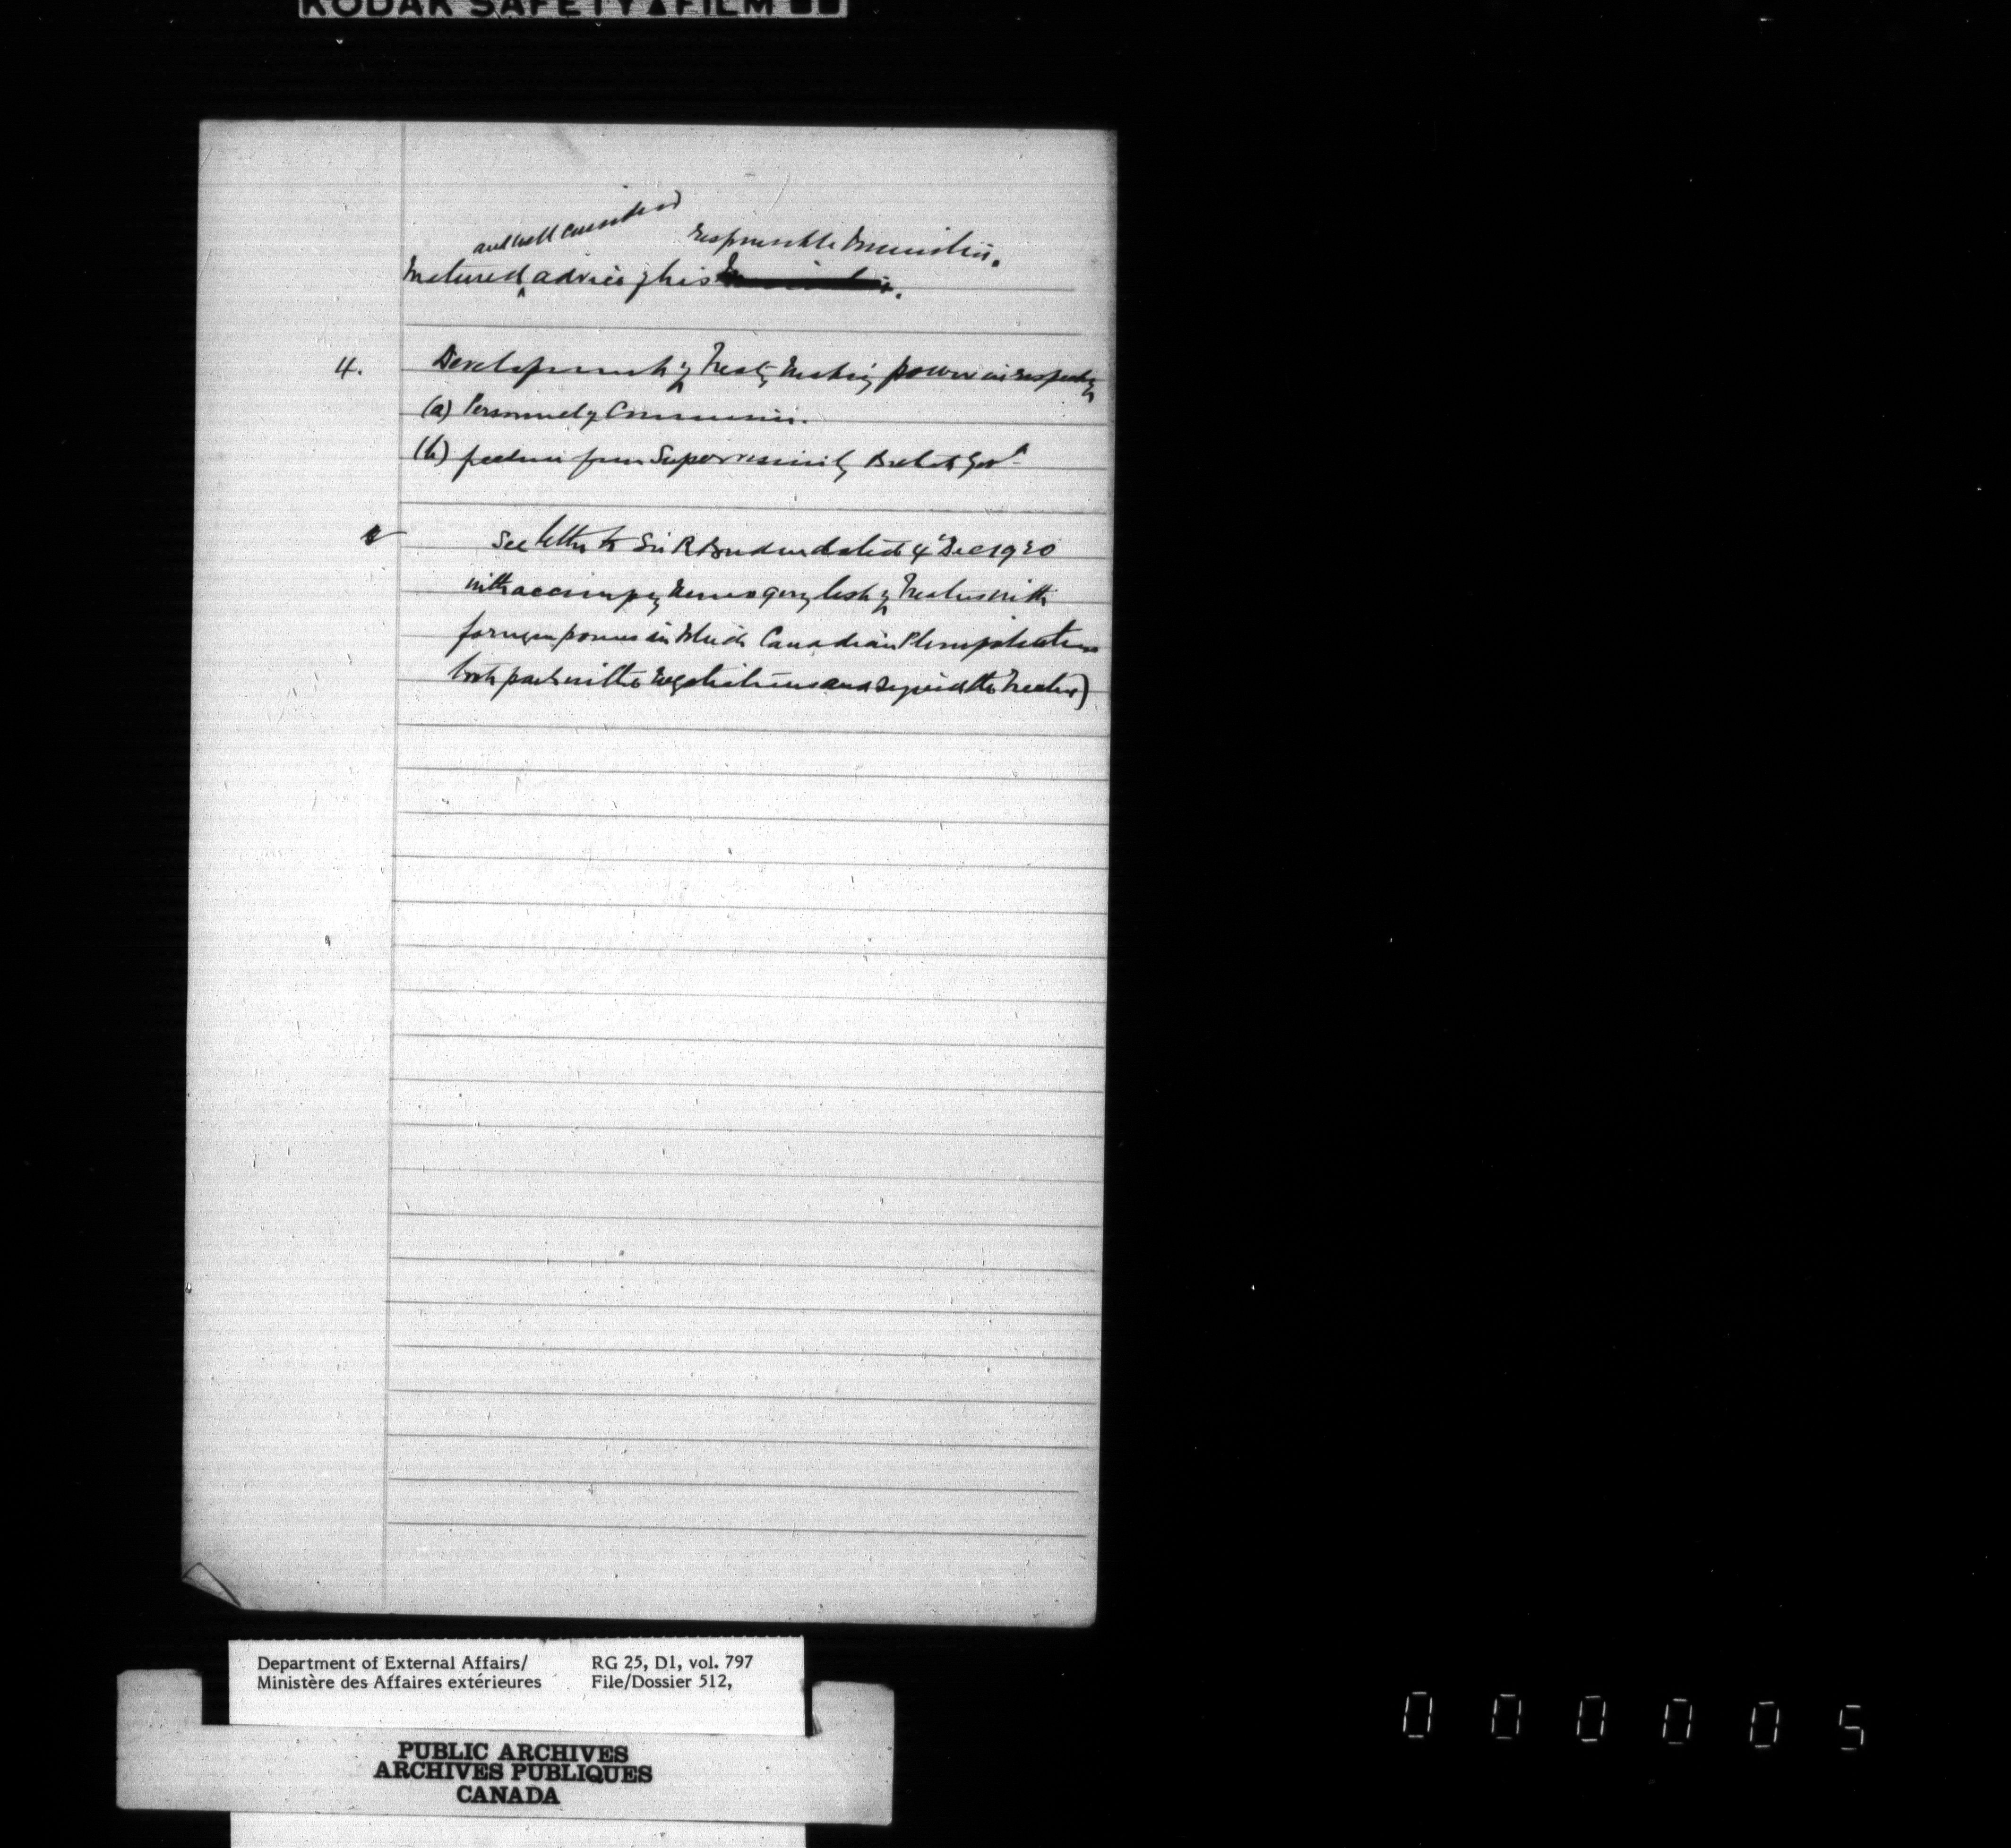 KODAK SAFETY FILM
and well considered responsible Ministers.
Matured advice of his
4. Development of Treaty Making power in respect of
(a) Personnel of Commission.
(b) freedom from Supervision by British Govt
See letter to Sir R Borden dated 4 Dec 1920
with accompg memo giving list of Treaties with
foreign powers in which Canadian Plenipotentiaries
took part in the negotiations and signed the Treaties)
Department of External Affairs/ RG 25, D1, vol. 797
Ministère des Affaires extérieures File/Dossier 512,
PUBLIC ARCHIVES
ARCHIVES PUBLIQUES
CANADA
000005